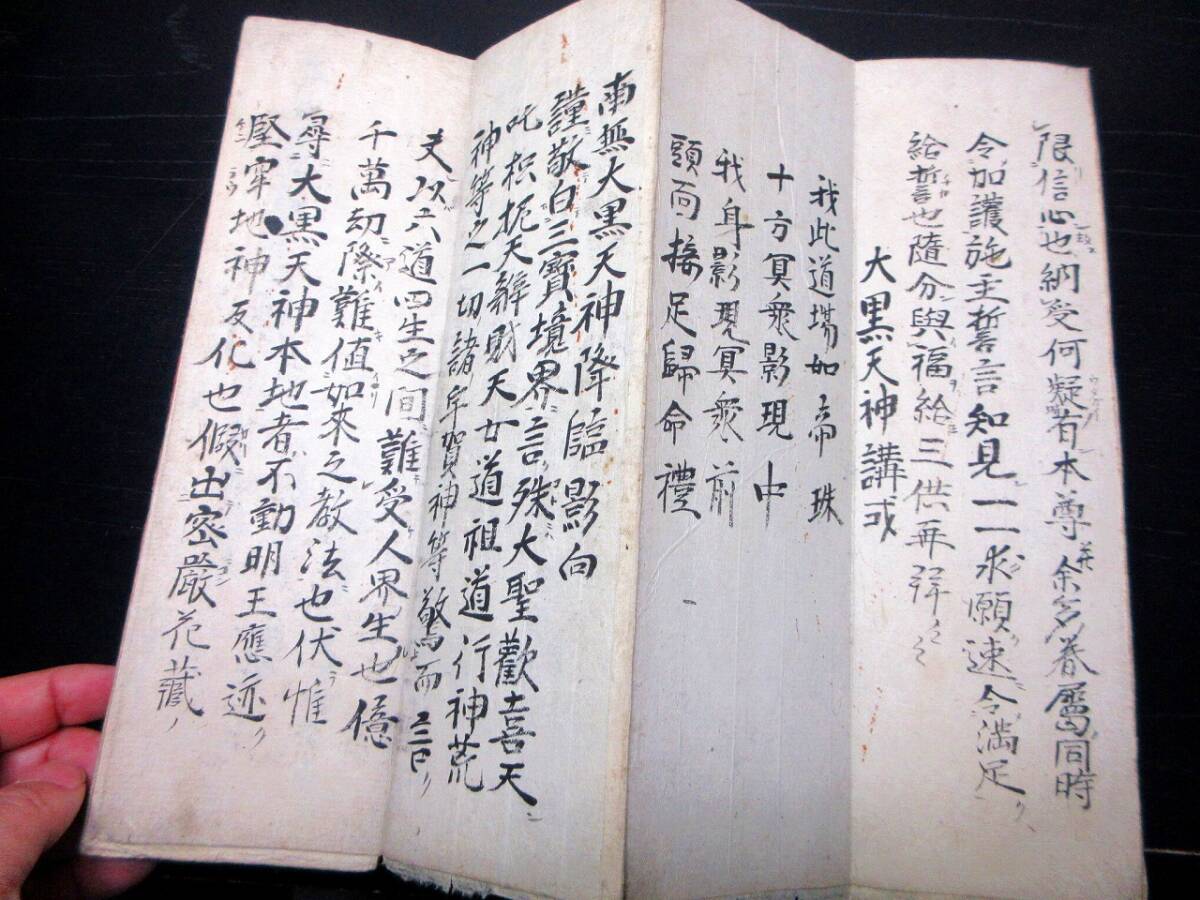 限信心也納受何疑有本尊并余多眷屬同時
令加護施主誓言知見一一求願速令満足
給誓也隨分與福給三供再拜〻〻
大黒天神講式
我此道場如帝珠
十方冥衆影現中
我身影現冥衆前
頭面接足歸命禮
南無大黒天神降臨影向
謹敬白三寶境界言殊大聖歡喜天
吒枳抳天辨財天女道祖道行神荒
神等之一切諸宇賀神等驚而言
夫以六道四生之間難受人界生也億
千萬劫際難値如來之教法也伏惟
尋大黒天神本地者不動明王應迹
堅牢地神反化也假出密嚴花藏